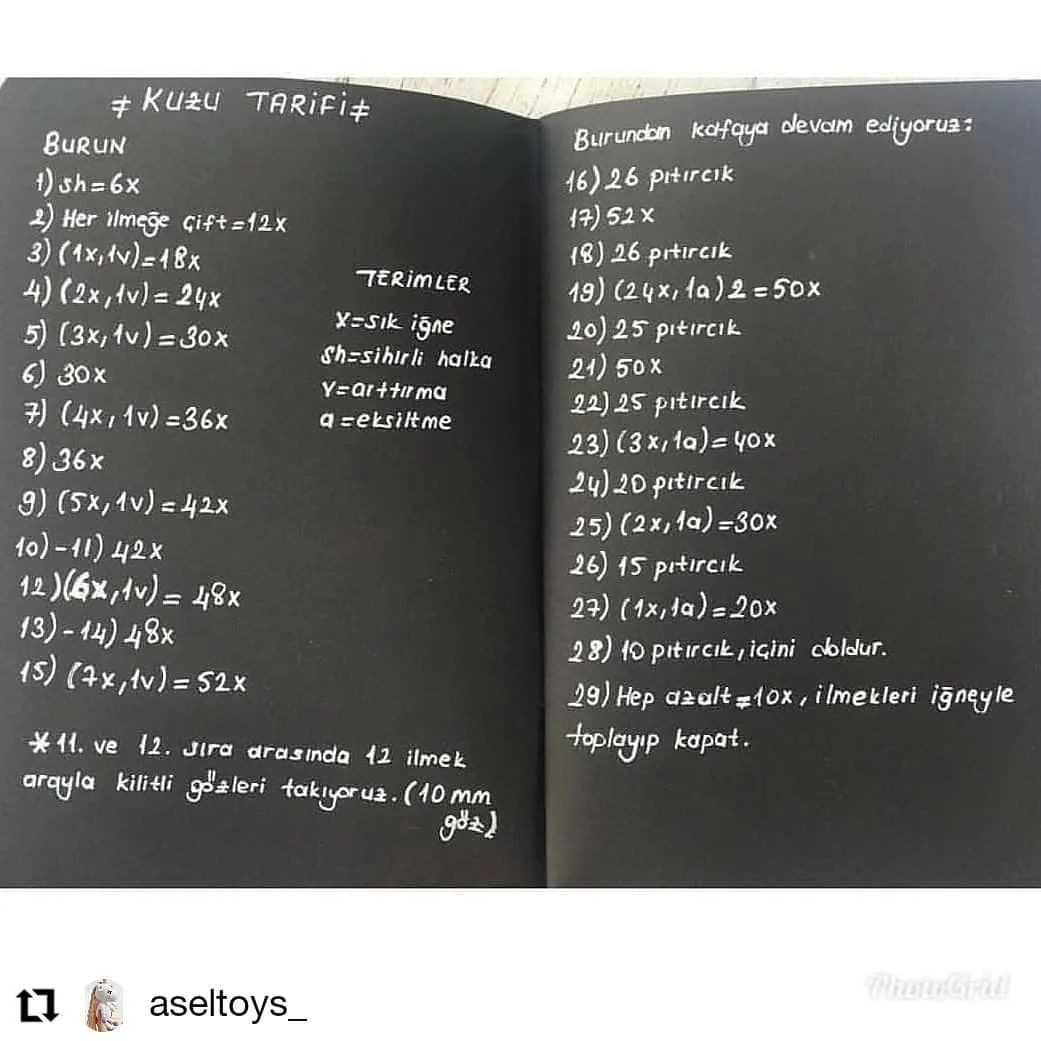 ≠ KUZU TARiFi ≠
BURUN
1) sh=6x
2) Her ilmeğe çift=12x
3) (1x,1v)=18x
4) (2x,1v)=24x
5) (3x,1v)=30x
6) 30x
7) (4x,1v)=36x
8) 36x
9) (5x,1v)=42x
10)-11) 42x
12) (6x,1v)= 48x
13)-14) 48x
15) (7x,1v)= 52x
*11. ve 12. sıra arasında 12 ilmek
arayla kilitli gözleri takıyoruz. (10 mm
göz)
TERiMLER
X=sık iğne
Sh=sihirli halka
V=arttırma
a=eksiltme
Burundan kafaya devam ediyoruz:
16) 26 pıtırcık
17) 52x
18) 26 pıtırcık
19) (24x,1a)2=50x
20) 25 pıtırcık
21) 50x
22) 25 pıtırcık
23) (3x,1a)=40x
24) 20 pıtırcık
25) (2x,1a)=30x
26) 15 pıtırcık
27) (1x,1a)=20x
28) 10 pıtırcık, içini doldur.
29) Hep azalt=10x, ilmekleri iğneyle
toplayıp kapat.
PhotoGrid
aseltoys_